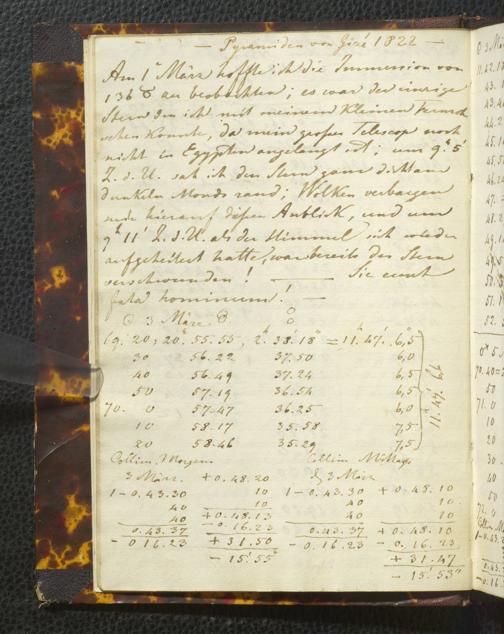 — Pyramiden von Gizé 1822 —
Am 1ᵗ März hoffte ich die Immersion von
136 ♉ zu beobachten; es war der einzige
Stern den ich mit meinem kleinen
sehen konnte, da mein großes Telescop noch
nicht in Egypten angelangt ist; um 9ʰ 5'
Z. d. U. sah ich den Stern ganz dicht am
dunkeln Monds rand; Wolken verbargen
mir hierauf diesen Anblick, und um
9ʰ 11' Z. d. U. als der Himmel sich wieder
aufgeheitert hatte, war bereits der Stern
verschwunden! — Sic eunt
fata hominum! —
☉ 3 März ☉
69. 20; 20ʰ 55. 55, 2. 38. 18 = 11. 47. 6,5
30 56. 22 37. 50 6,0
40 56. 49 37. 24 6,5
50 57. 19 36. 54 6,5
70. 0 57. 47 36. 25 6,0
10 58. 17 35. 58 7,5
20 58. 46 35. 29 7,5
11. 47. 6,6
Collim. Morgens Collim. Mittag
3 März. + 0. 48. 20 3 März
1 - 0. 43. 30 10 1 - 0. 43. 30 + 0. 48. 10
40 10 40 10
40 + 0. 48. 13 40 10
0. 43. 37 - 0. 16. 23 0. 43. 37 + 0. 48. 10
- 0. 16. 23 + 31. 50 - 0. 16. 23 - 0. 16. 23
- 15. 55" + 31. 47
- 15. 53"